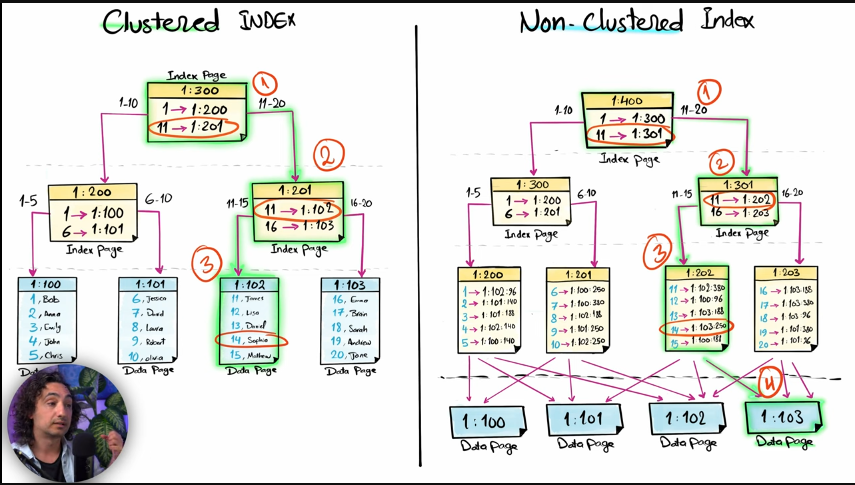 Clustered INDEX
Index Page
1:300
1 → 1:200
11 → 1:201
1
1-10
11-20
2
1:200
1 → 1:100
6 → 1:101
Index Page
1:201
11 → 1:102
16 → 1:103
Index Page
1-5
6-10
11-15
16-20
3
1:100
1, Bob
2, Anna
3, Emily
4, John
5, Chris
1:101
6, Jessica
7, David
8, Laura
9, Robert
10, Olivia
Data Page
1:102
11, James
12, Lisa
13, Daniel
14, Sophia
15, Mathew
Data Page
1:103
16, Emma
17, Brian
18, Sarah
19, Andrew
20, Jane
Data Page
Non-Clustered Index
1:400
1 → 1:300
11 → 1:301
Index Page
1
1-10
11-20
2
1:300
1 → 1:200
6 → 1:201
Index Page
1:301
11 → 1:202
16 → 1:203
Index Page
1-5
6-10
11-15
16-20
3
1:200
1 → 1:102:96
2 → 1:101:140
3 → 1:103:188
4 → 1:102:140
5 → 1:100:140
1:201
6 → 1:100:250
7 → 1:100:380
8 → 1:102:188
9 → 1:101:250
10 → 1:102:250
1:202
11 → 1:102:380
12 → 1:100:96
13 → 1:103:188
14 → 1:103:250
15 → 1:100:188
1:203
16 → 1:103:188
17 → 1:103:380
18 → 1:103:96
19 → 1:101:380
20 → 1:101:96
4
1:100
Data Page
1:101
Data Page
1:102
Data Page
1:103
Data Page